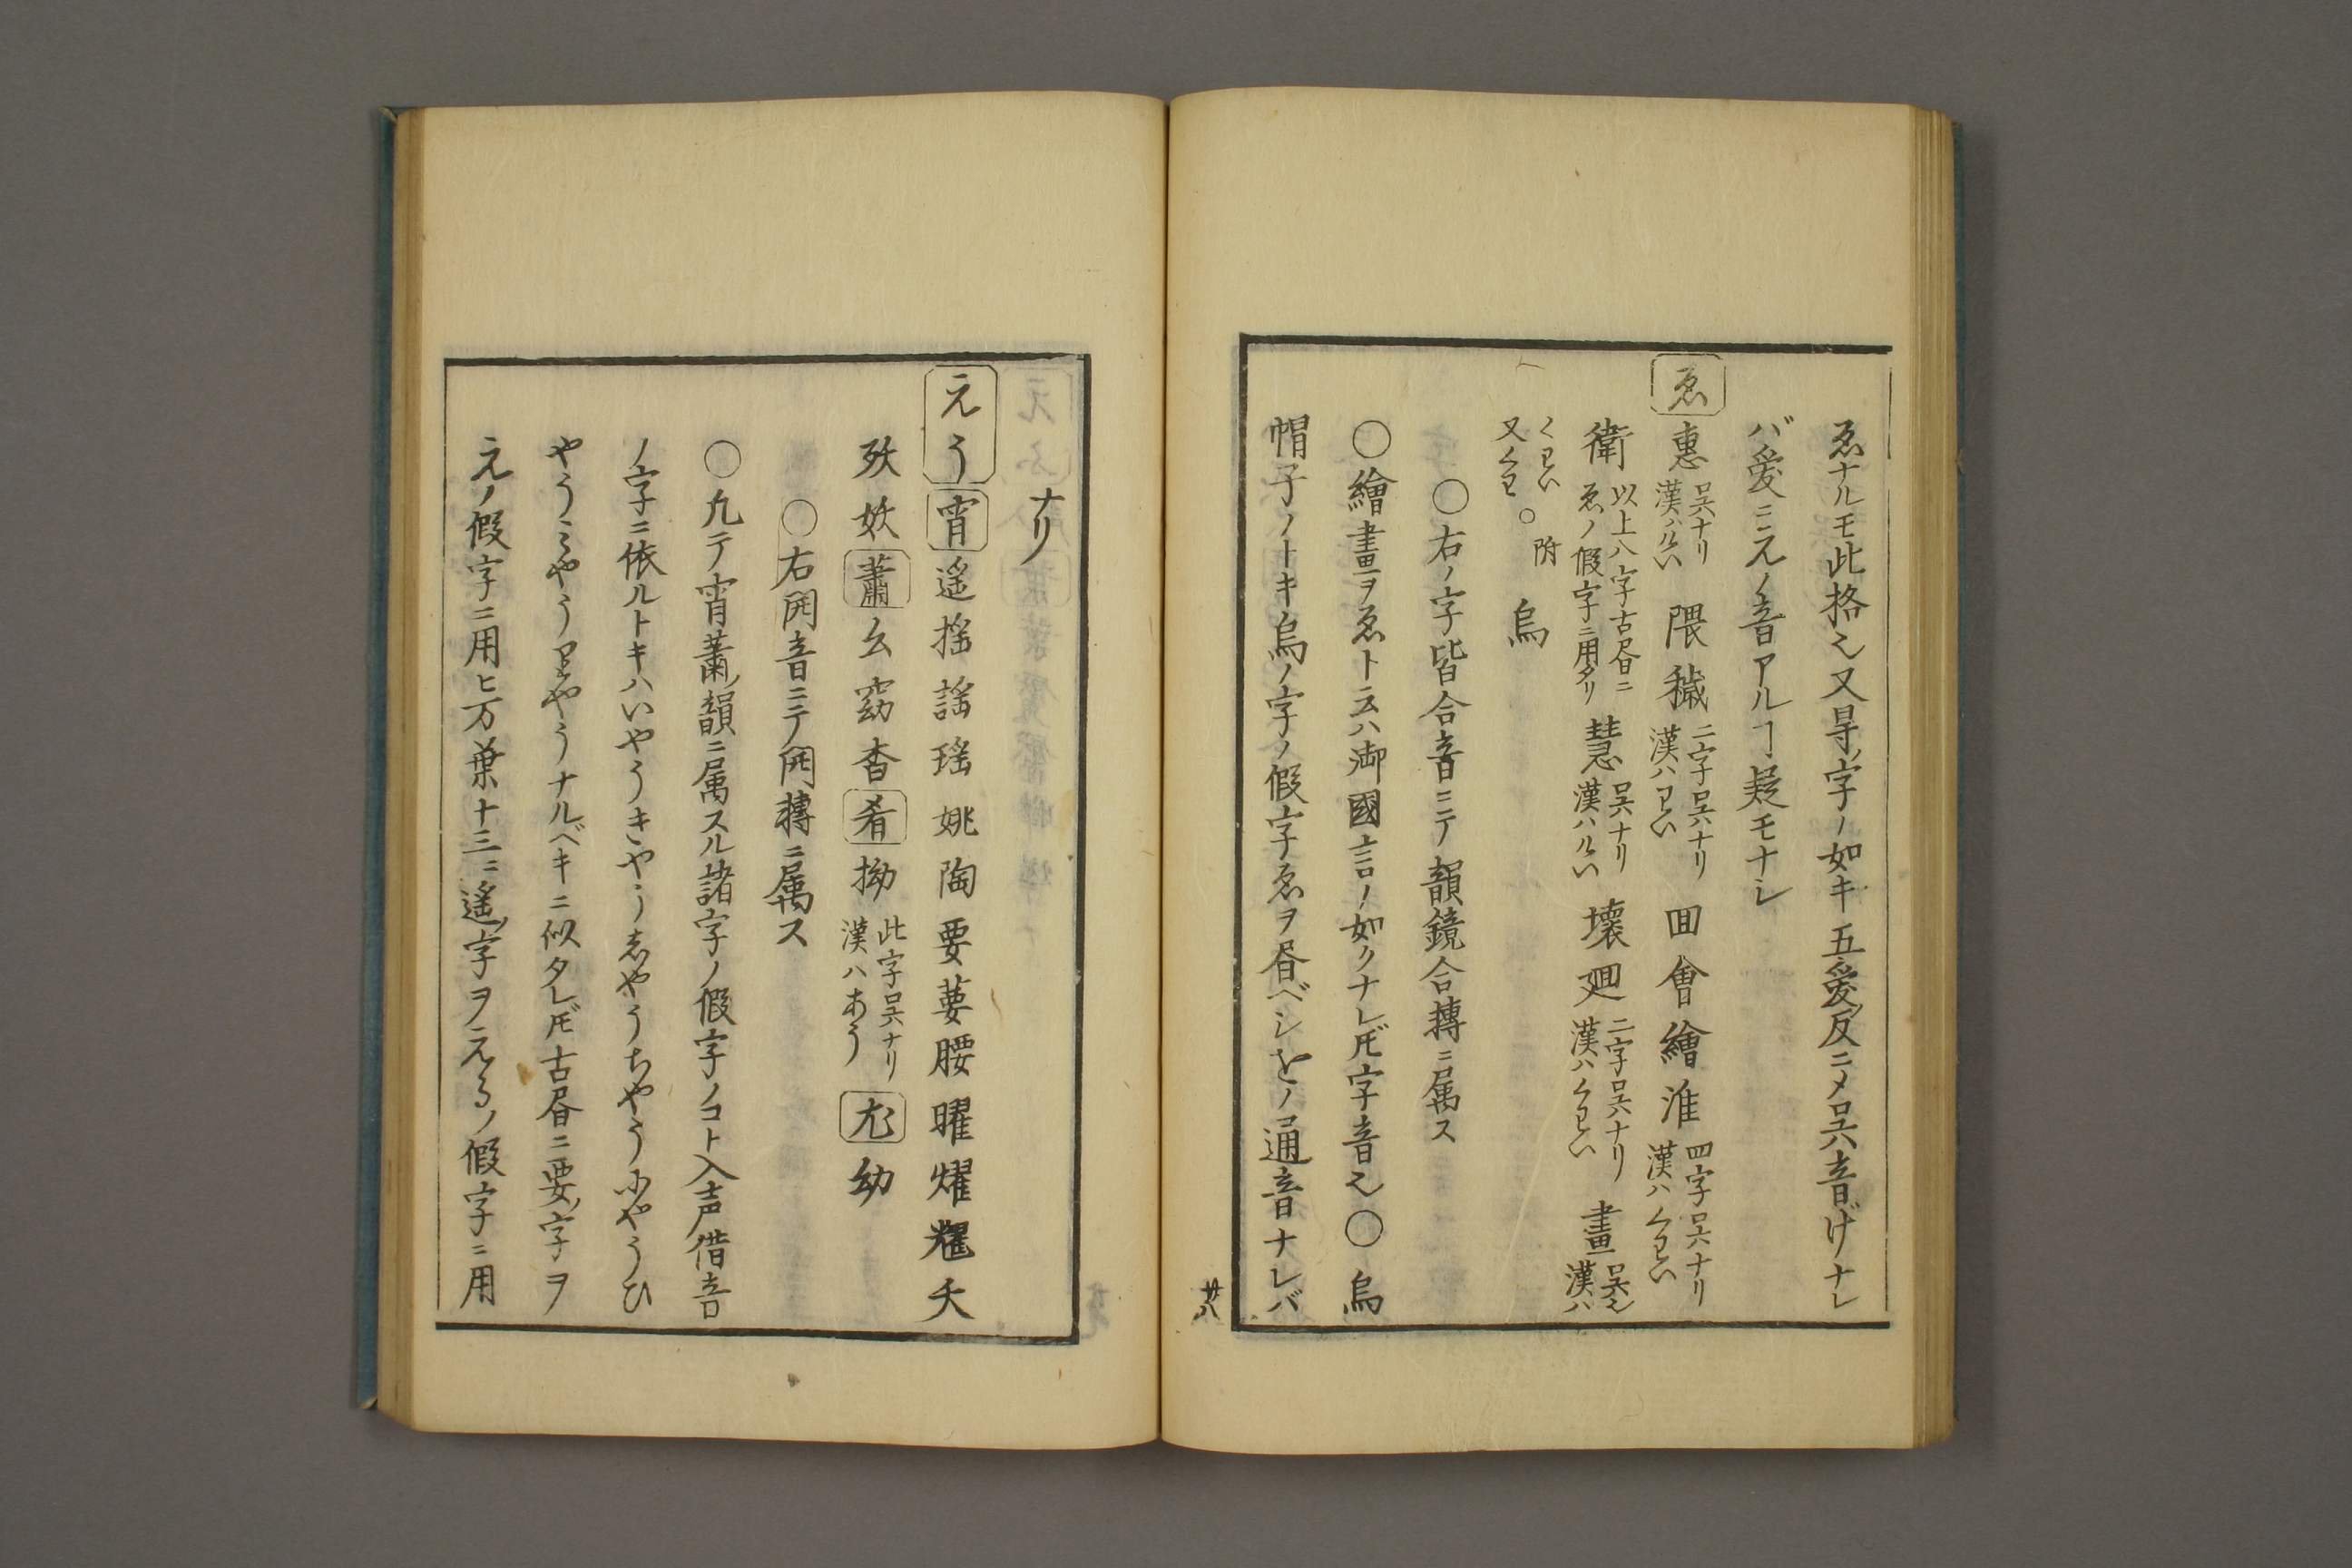 ゑナルモ此格也又㝵ノ字ノ如キ五愛ノ反ニメ呉音げナレ
バ愛ニえノ音アルヿ疑モナシ
ゑ 惠 呉ナリ 漢ハけい 隈穢 二字呉ナリ 漢ハわい 囬會繪淮 四字呉ナリ 漢ハくわい
衛 以上八字古昏ニ ゑノ假字ニ用タリ 慧 呉ナリ 漢ハけい 壞廻 二字呉ナリ 漢ハくわい 畫 呉也 漢ハ
くわい 又くわ 〇 附 烏
〇右ノ字皆合音ニテ韻鏡合轉ニ属ス
〇繪畫ヲゑト云ハ御國言ノ如クナレ𪜈字音也〇烏
帽子ノトキ烏ノ字ノ假字ゑヲ昏ベシをノ通音ナレバ
廿八
ナリ
えう 宵 遙揺謡瑤姚陶要葽腰曜燿耀夭
殀妖 蕭 幺窈杳 肴 拗 此字呉ナリ 漢ハあう 尤 幼
〇右開音ニテ開轉ニ属ス
〇凡テ宵蕭ノ韻ニ属スル諸字ノ假字ノコト入声借音
ノ字ニ依ルトキハいやうきやうしやうちやうにやうひ
やうみやうりやうナルベキニ似タレ𪜈古昏ニ要ノ字ヲ
えノ假字ニ用ヒ万葉十三ニ遙ノ字ヲえるノ假字ニ用